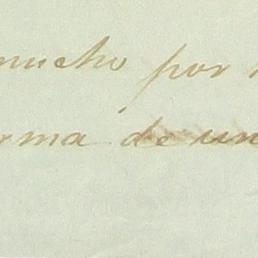 mucho por
rma de un